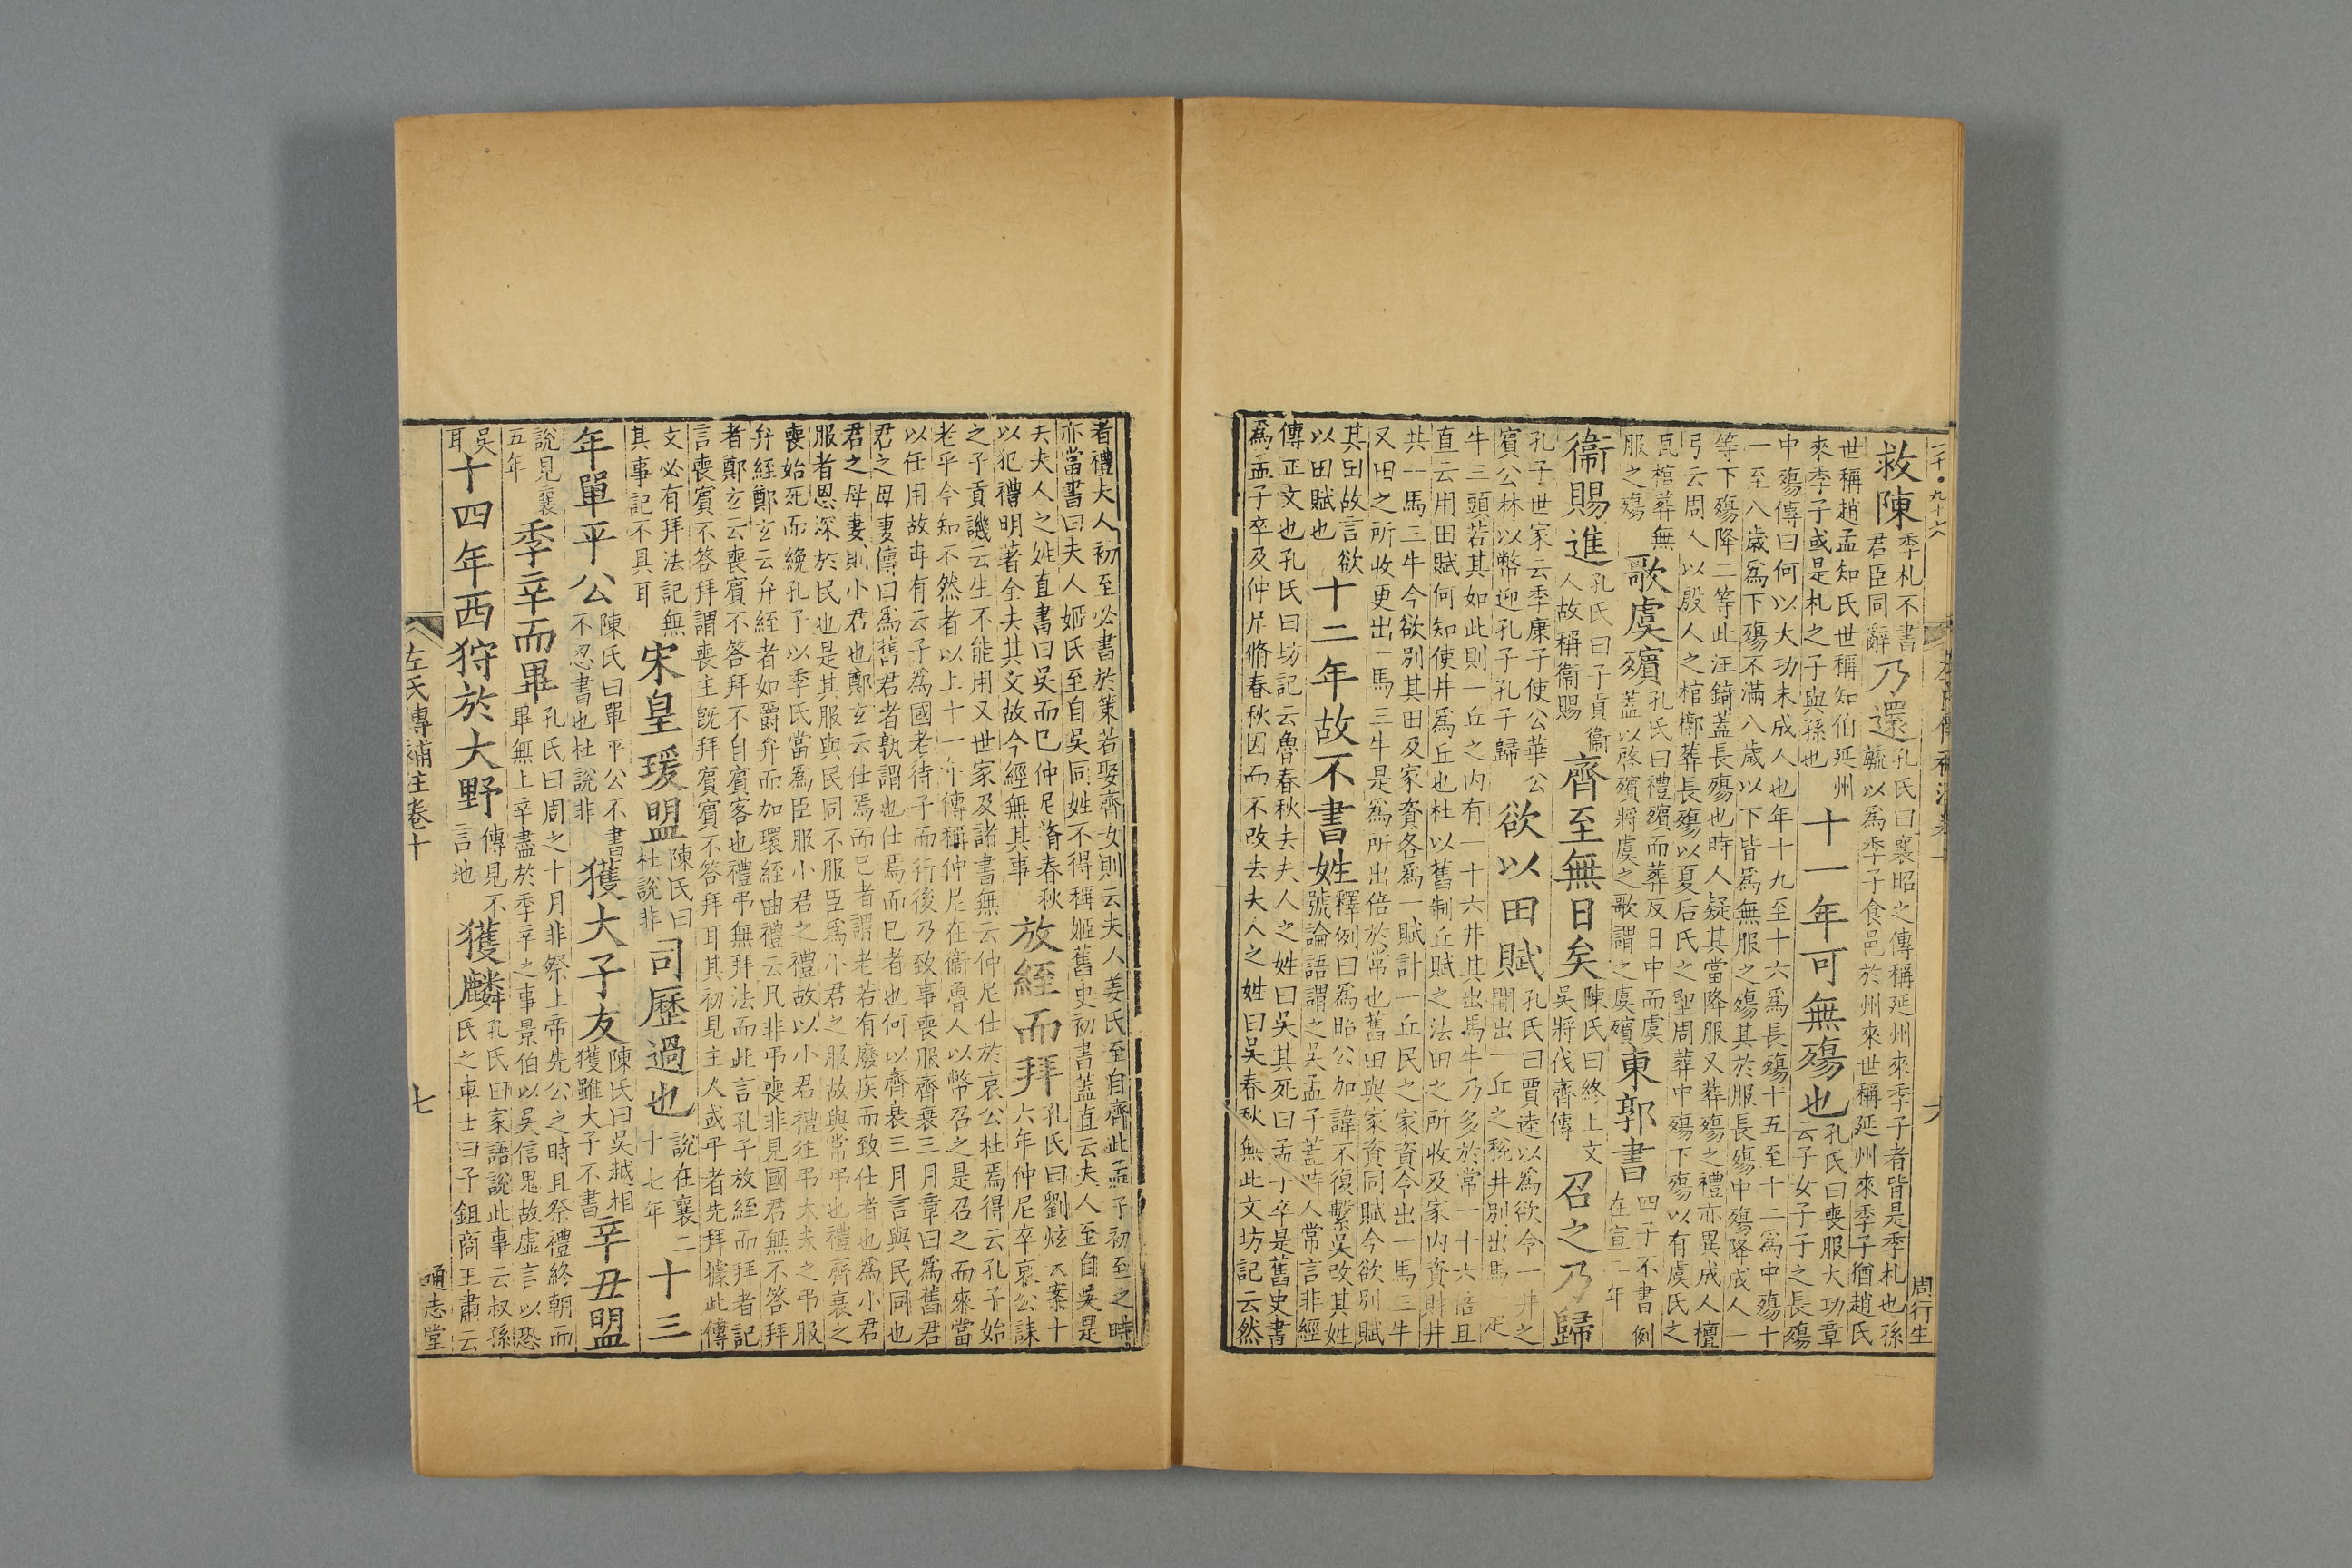 二千●九十六
左氏傳補注卷十
六
周行生
救陳
季札不書
君臣同辭
乃還
孔氏曰襄昭之傳稱延州來季子者皆是季札也孫
毓以爲季子食邑於州來世稱延州來季子猶趙氏
世稱趙孟知氏世稱知伯延州
來季子或是札之子與孫也
十一年可無殤也
孔氏曰喪服大功章
云子女子子之長殤
中殤傳曰何以大功未成人也年十九至十六爲長殤十五至十二爲中殤十
一至八歲爲下殤不滿八歲以下皆爲無服之殤其於服長殤中殤降成人一
等下殤降二等此汪錡蓋長殤也時人疑其當降服又葬殤之禮亦異成人檀
弓云周人以殷人之棺槨葬長殤以夏后氏之堲周葬中殤下殤以有虞氏之
瓦棺葬無
服之殤
歌虞殯
孔氏曰禮殯而葬反日中而虞
蓋以啓殯將虞之歌謂之虞殯
東郭書
四子不書例
在宣二年
衞賜進
孔氏曰子貢衞
人故稱衞賜
齊至無日矣
陳氏曰終上文
吳將伐齊傳
召之乃歸
孔子世家云季康子使公華公
賓公林以幣迎孔子孔子歸
欲以田賦
孔氏曰賈逵以爲欲令一井之
閒出一丘之稅井別出馬一疋
牛三頭若其如此則一丘之内有一十六井其出馬牛乃多於常一十六倍且
直云用田賦何知使井爲丘也杜以舊制丘賦之法田之所收及家内資財井
共一馬三牛今欲別其田及家資各爲一賦計一丘民之家資令出一馬三牛
又田之所收更出一馬三牛是爲所出倍於常也舊田與家資同賦今欲別賦
其田故言欲
以田賦也
十二年故不書姓
釋例曰爲昭公加諱不復繫吳改其姓
號論語謂之吳孟子蓋時人常言非經
傳正文也孔氏曰坊記云魯春秋去夫人之姓曰吳其死曰孟子卒是舊史書
爲孟子卒及仲尼脩春秋因而不改去夫人之姓曰吳春秋無此文坊記云然
者禮夫人初至必書於策若娶齊女則云夫人姜氏至自齊此孟子初至之時
亦當書曰夫人姬氏至自吳同姓不得稱姬舊史初書蓋直云夫人至自吳是
夫夫人之姓直書曰吳而已仲尼脩春秋
以犯禮明著全夫其文故今經無其事
放絰而拜
孔氏曰劉炫云案十
六年仲尼卒哀公誄
之子貢譏云生不能用又世家及諸書無云仲尼仕於哀公杜焉得云孔子始
老乎今知不然者以上十一年傳稱仲尼在衞魯人以幣召之是召之而來當
以任用故冉有云子爲國老待子而行後乃致事喪服齊衰三月章曰爲舊君
君之母妻傳曰爲舊君者孰謂也仕焉而已者也何以齊衰三月言與民同也
君之母妻則小君也鄭玄云仕焉而已者謂老若有廢疾而致仕者也爲小君
服者恩深於民也是其服與民同不服臣爲小君之服故與常弔也禮齊衰之
喪始死而絻孔子以季氏當爲臣服小君之禮故以小君禮往弔大夫之弔服
弁絰鄭玄云弁絰者如爵弁而加環絰曲禮云凡非弔喪非見國君無不答拜
者鄭玄云喪賓不答拜不自賓客也禮弔無拜法而此言孔子放絰而拜者記
言喪賓不答拜謂喪主旣拜賓賓不答拜耳其初見主人或平者先拜據此傳
文必有拜法記無
其事記不具耳
宋皇瑗盟
陳氏曰
杜說非
司歷過也
說在襄二
十七年
十三
年單平公
陳氏曰單平公不書
不忍書也杜說非
獲大子友
陳氏曰吳越相
獲雖大子不書
辛丑盟
說見襄
五年
季辛而畢
孔氏曰周之十月非祭上帝先公之時且祭禮終朝而
畢無上辛盡於季辛之事景伯以吳信鬼故虛言以恐
吳
耳
十四年西狩於大野
傳見不
言地
獲麟
孔氏曰家語說此事云叔孫
氏之車士曰子鉏商王肅云
左氏傳補注卷十
七
通志堂